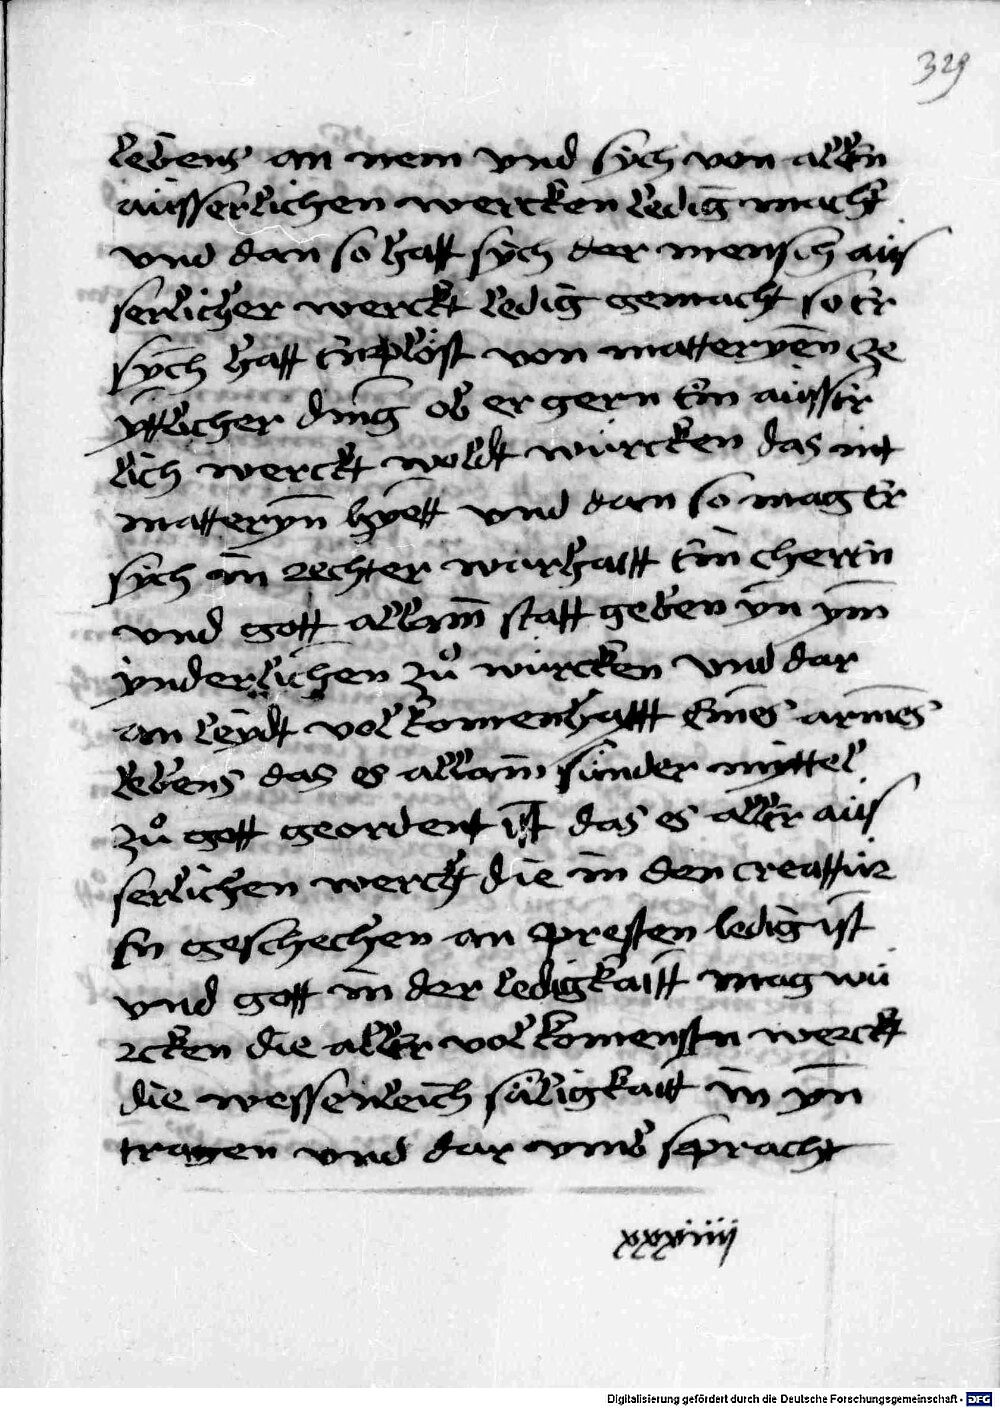 329
lebens an nem vnd sych von allen
aüsserlichen wercken ledig macht
vnd dan so hatt sych der mensch aüs
serlicher werckt ledig gemacht so er
sych hatt enplöst von matteryen ze
yttlicher ding ob er gern ein aüsser
lich werckt woldt würcken das nit
matteryn hyett vnd dan so mag er
sych in rechter warhaitt ein cherrn
vnd gott allain statt geben yn ym
ynderlichen zů würcken vnd dar
an leydt volkomenhaittt eines armes
lebens das es allain sünder myttel
zů gott geordent ist das es aller aüs
serlichen werckt die in den creattür
en geschechen an presten ledig ist
vnd gott in der ledigkaitt mag wü
rcken die aller volkomensten werckt
die wessenleich säligkaitt in yn
tragen vnd dar vmb spracht
xxxiiij
Digitalisierung gefördert durch die Deutsche Forschungsgemeinschaft - DFG